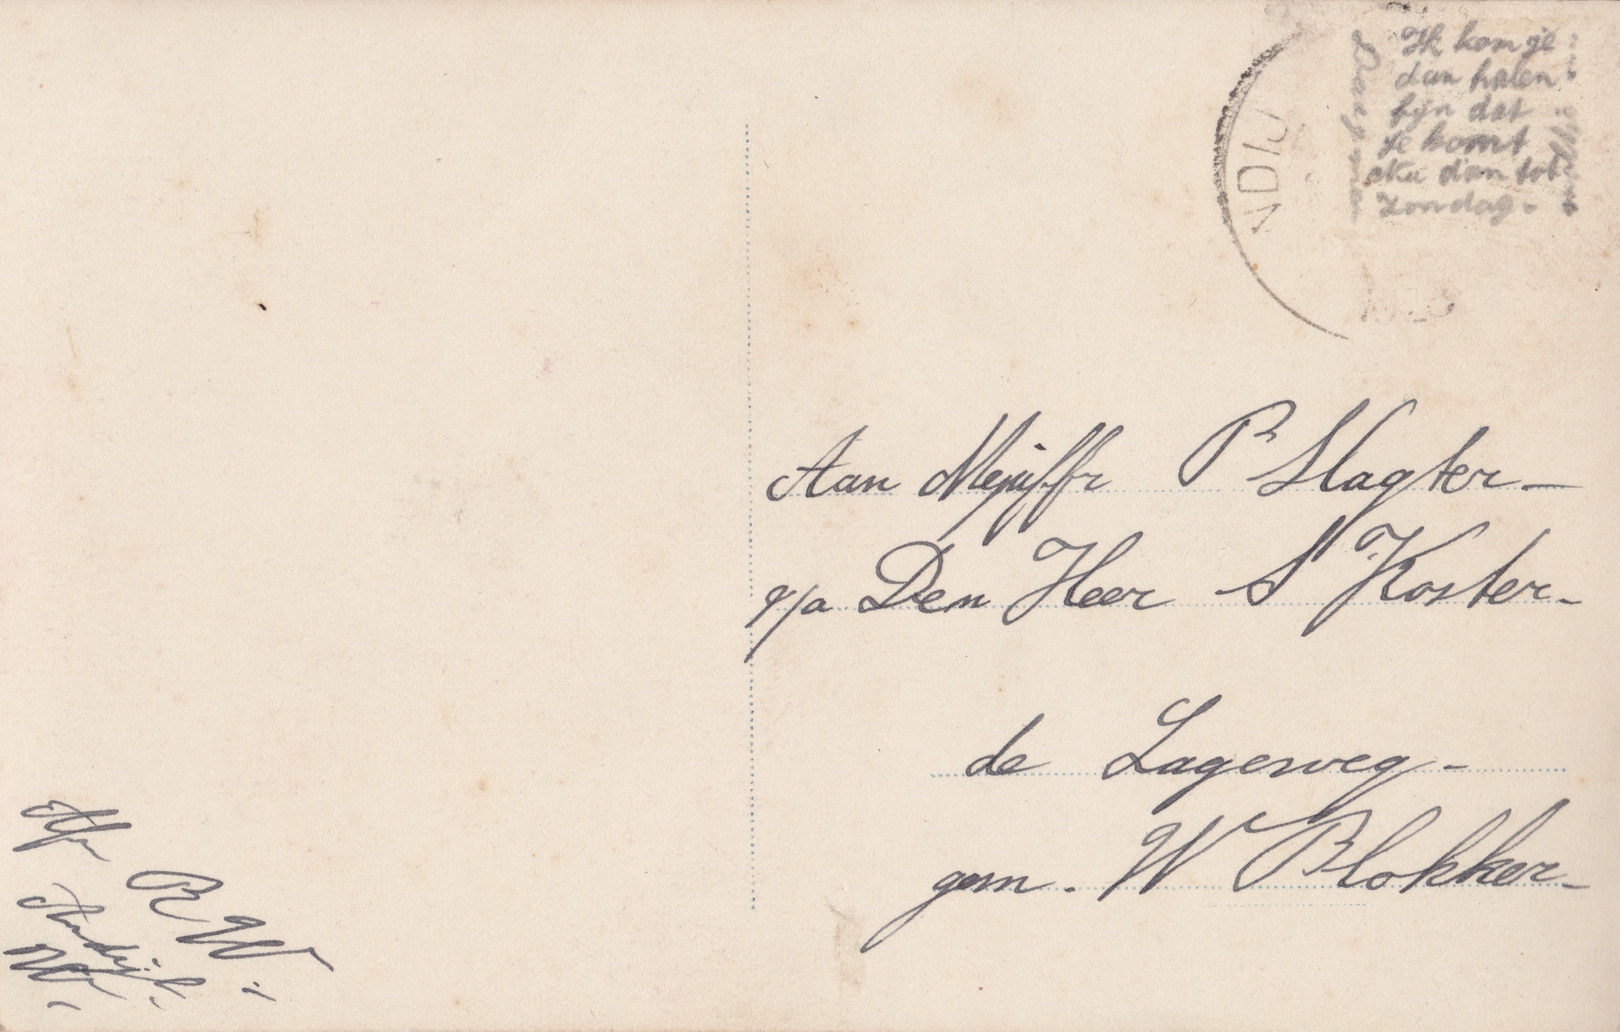 Ik kom je
dan halen
fijn dat
je komt
dan tot
Zondag.
NDIJ
Aan Mejuffr P Slagter
p/a Den Heer S Koster
de Lageweg
gem. W Blokker
Afz
R W.
Andijk
W.